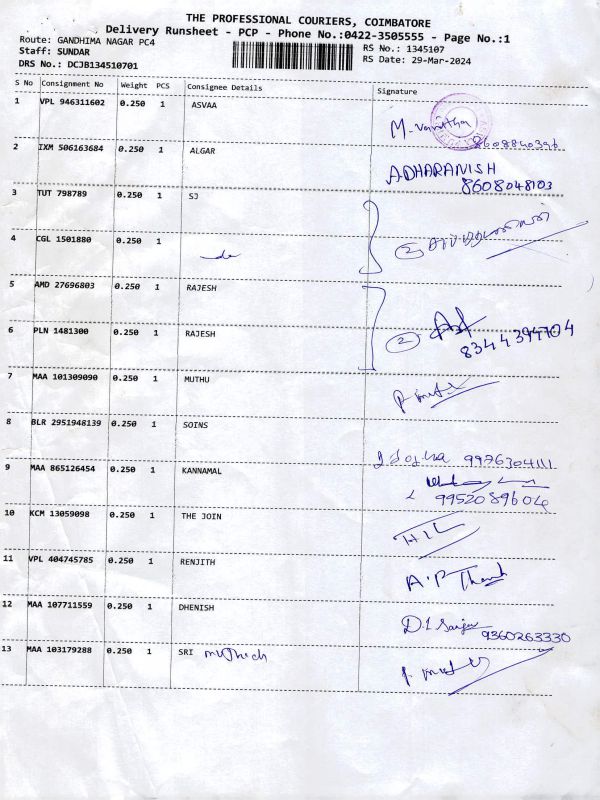 THE PROFESSIONAL COURIERS, COIMBATORE
Delivery Runsheet - PCP - Phone No.:0422-3505555 - Page No.:1
Route: GANDHIMA NAGAR PC4
RS No.: 1345107
Staff: SUNDAR
RS Date: 29-Mar-2024
DRS No.: DCJB134510701
S No Consignment No Weight PCS Consignee Details Signature
1 VPL 946311602 0.250 1 ASVAA
M. Vanitha
8608840396
2 IXM 506163684 0.250 1 ALGAR
ADHARANISH
8608048103
3 TUT 798789 0.250 1 SJ
4 CGL 1501880 0.250 1
2
5 AMD 27696803 0.250 1 RAJESH
6 PLN 1481300 0.250 1 RAJESH
2
8344394704
7 MAA 101309090 0.250 1 MUTHU
8 BLR 2951948139 0.250 1 SOINS
9976304111
9 MAA 865126454 0.250 1 KANNAMAL
9952089604
10 KCM 13059098 0.250 1 THE JOIN
11 VPL 404745785 0.250 1 RENJITH
12 MAA 107711559 0.250 1 DHENISH
9360263330
13 MAA 103179288 0.250 1 SRI